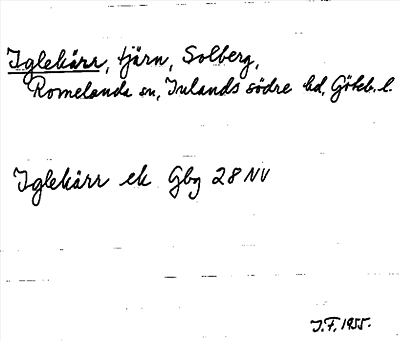 Iglekärr, tjärn, Solberg,
Romelanda sn, Inlands södre hd, Göteb. l.
Iglekärr ek Gbg 28 NV
J.F. 1955.